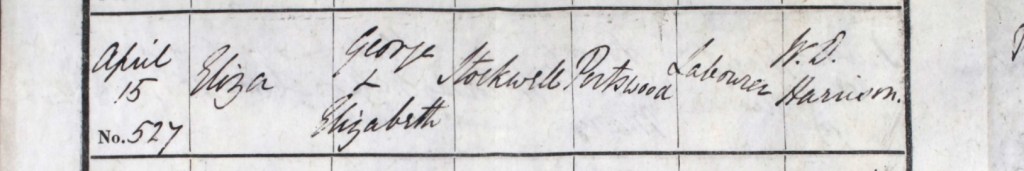 April
15
No. 527
Eliza
George
+
Elizabeth
Stockwell
Portswood
Labourer
W. D.
Harrison.